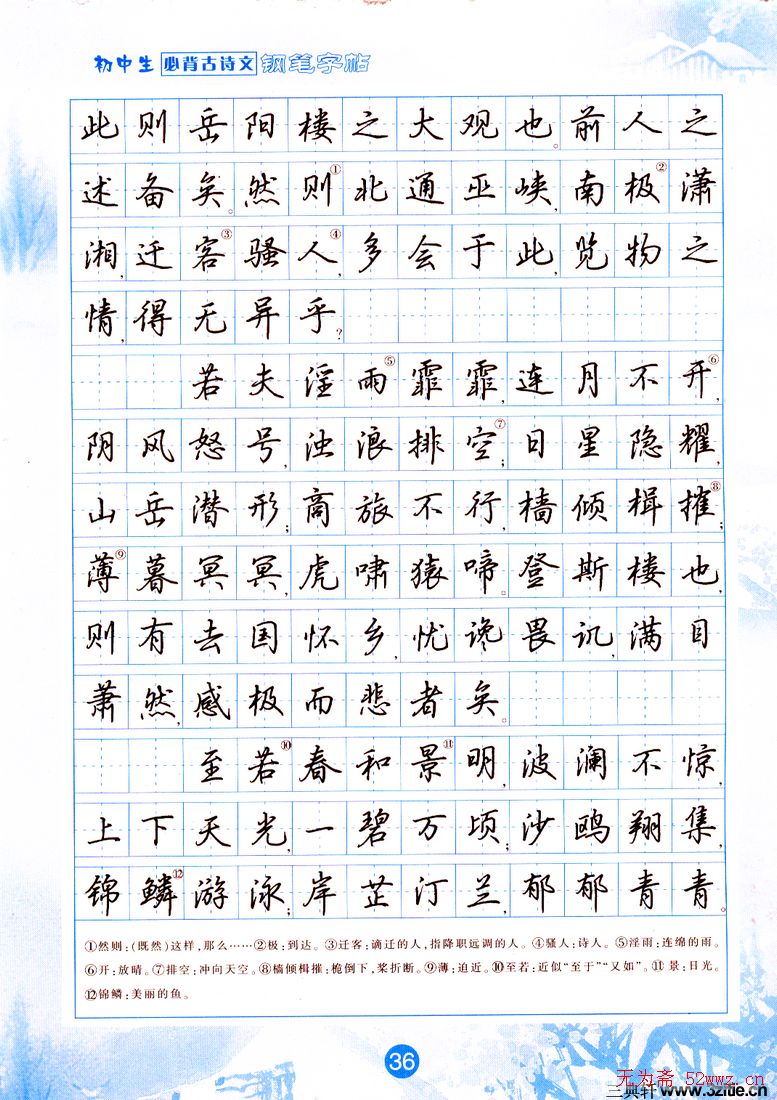 初中生 必背古诗文 钢笔字帖
此则岳阳楼之大观也。前人之
述备矣。然则①北通巫峡,南极②潇
湘,迁客③骚人④,多会于此,览物之
情,得无异乎?
若夫淫雨⑤霏霏,连月不开⑥,
阴风怒号,浊浪排空⑦;日星隐耀,
山岳潜形;商旅不行,樯倾楫摧⑧;
薄⑨暮冥冥,虎啸猿啼。登斯楼也,
则有去国怀乡,忧谗畏讥,满目
萧然,感极而悲者矣。
至若⑩春和景⑪明,波澜不惊,
上下天光,一碧万顷;沙鸥翔集,
锦鳞⑫游泳;岸芷汀兰,郁郁青青。
①然则:(既然)这样,那么……②极:到达。③迁客:谪迁的人,指降职远调的人。④骚人:诗人。⑤淫雨:连绵的雨。
⑥开:放晴。⑦排空:冲向天空。⑧樯倾楫摧:桅倒下,桨折断。⑨薄:迫近。⑩至若:近似“至于”“又如”。⑪景:日光。
⑫锦鳞:美丽的鱼。
36
无为斋 52wwz.cn
三典轩 www.3zitie.cn